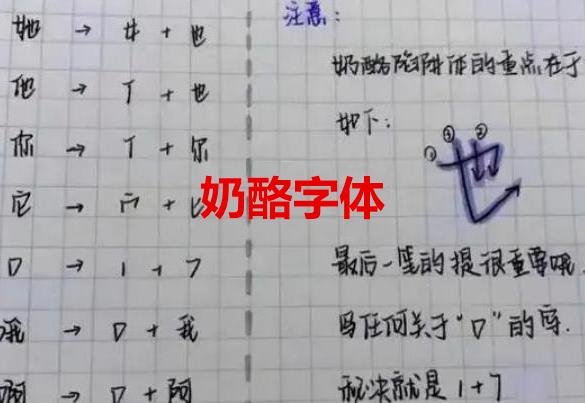 她 → 女 + 也
他 → 亻 + 也
你 → 亻 + 尔
它 → 宀 + 匕
口 → 1 + 7
哦 → 口 + 我
啊 → 口 + 阿
奶酪字体
注意:
奶酪陷阱体的重点在于
如下:
① ③ ②
也
最后一笔的提很重要哦.
写任何关于“口”的字.
秘诀就是 1 + 7